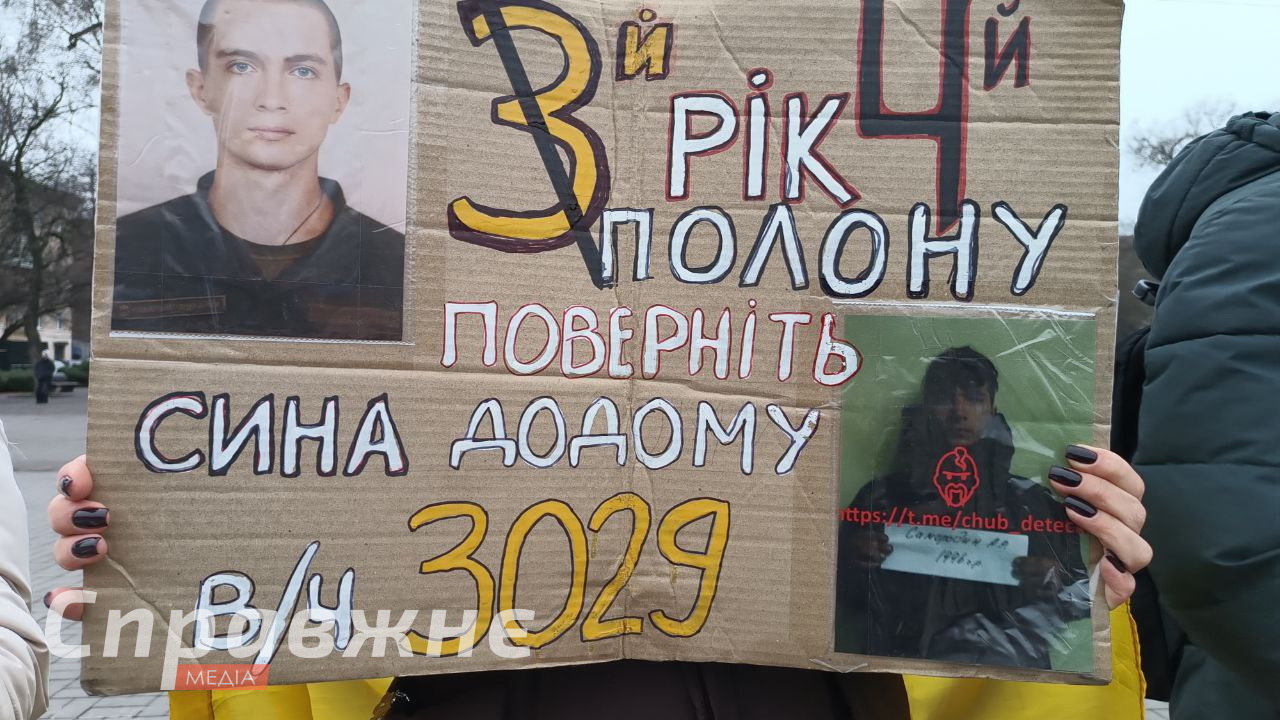 3й 4й
рік
полону
поверніть
сина додому
в/ч 3029
https://t.me/chub_detec
1996 г.р.
Справжнє
МЕДІА